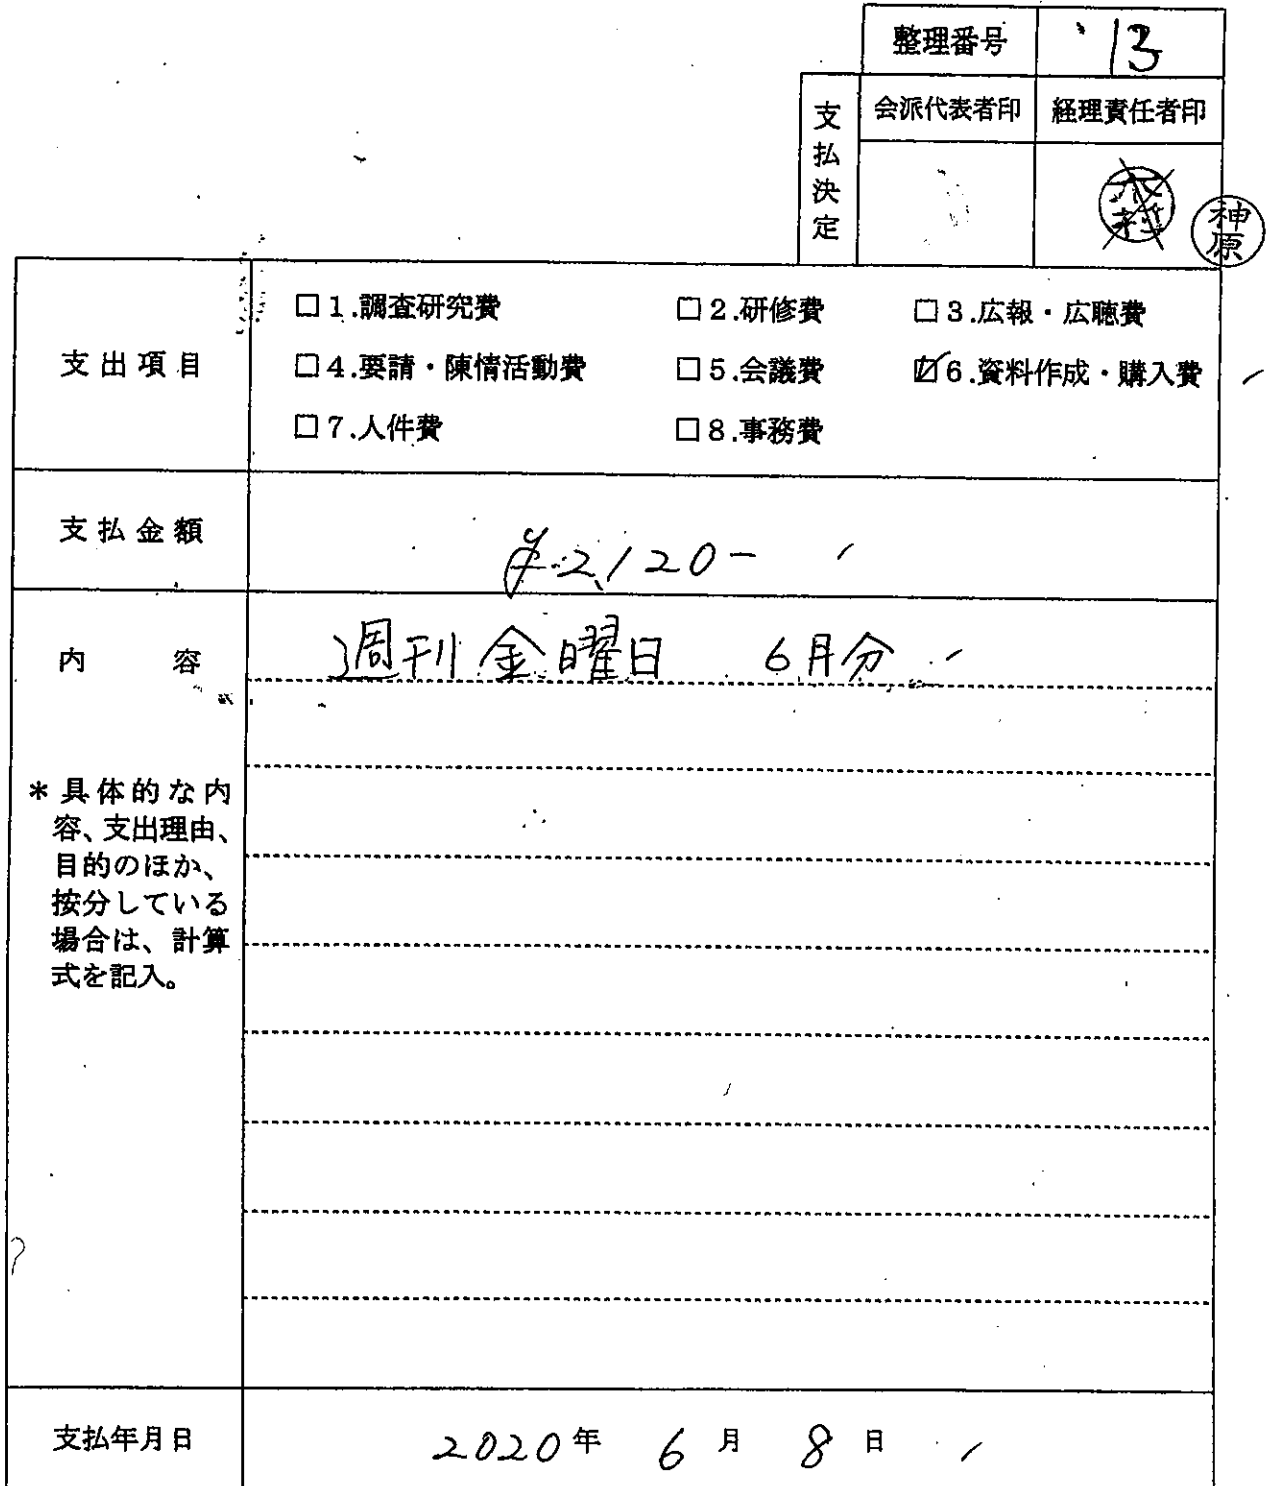 整理番号 13
支払決定 会派代表者印 経理責任者印
神原
支出項目
□1.調査研究費 □2.研修費 □3.広報・広聴費
□4.要請・陳情活動費 □5.会議費 ☑6.資料作成・購入費
□7.人件費 □8.事務費
支払金額 ¥2,120-
内容 週刊金曜日 6月分
*具体的な内
容、支出理由、
目的のほか、
按分している
場合は、計算
式を記入。
支払年月日 2020年 6月 8日